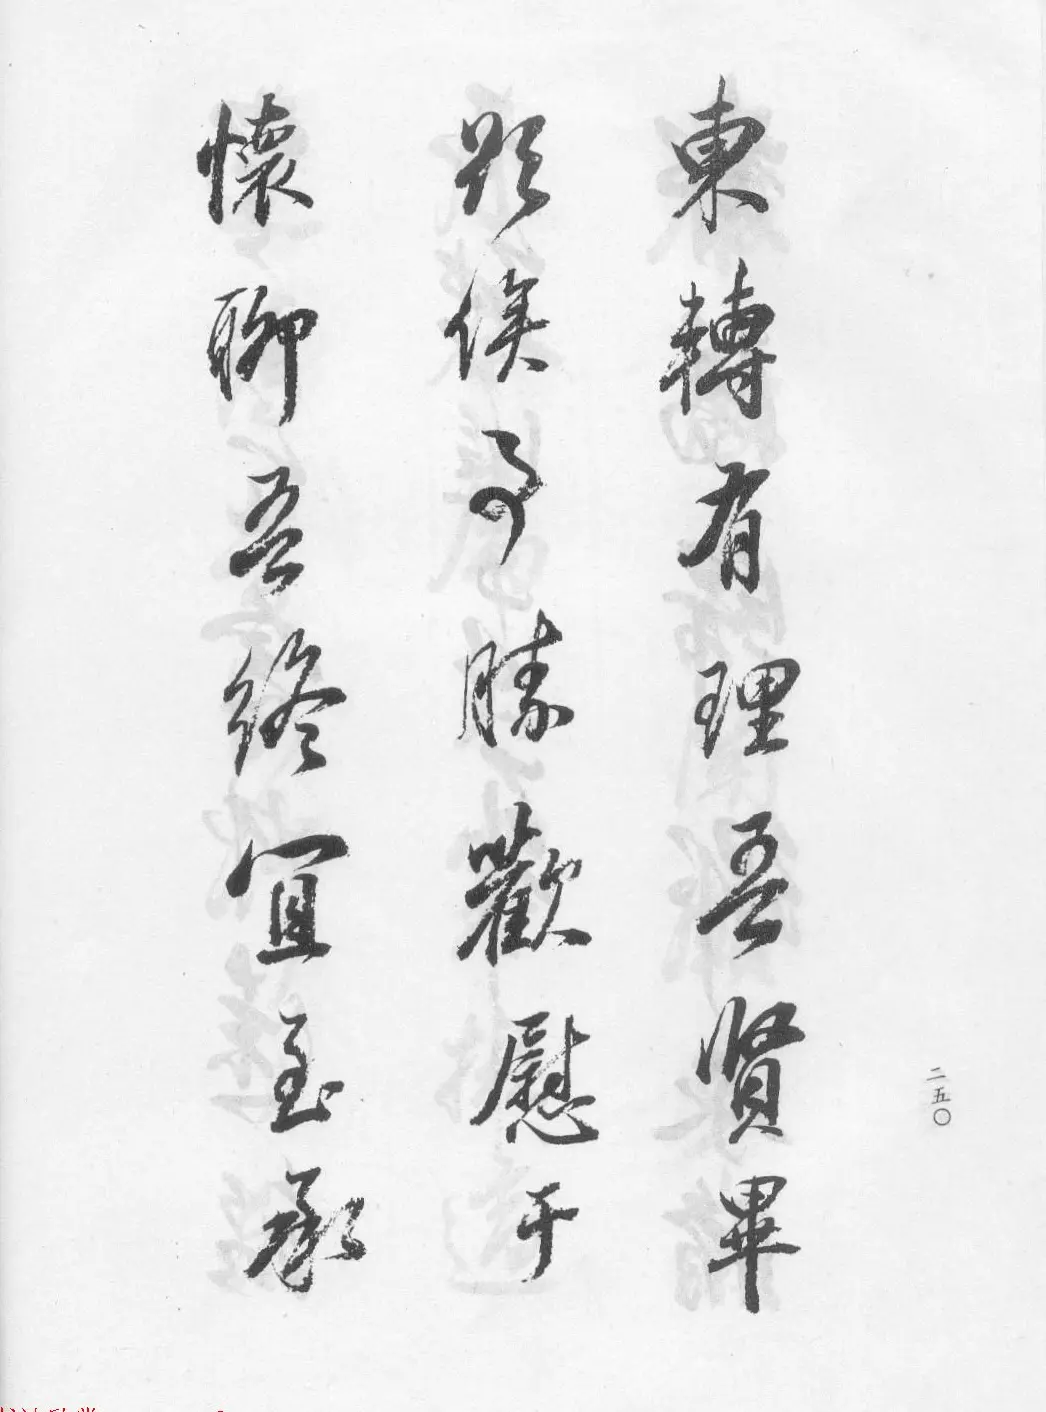 東轉有理吾賢畢
歟俟了勝歡慰于
懷聊吾終宜至承
二五〇